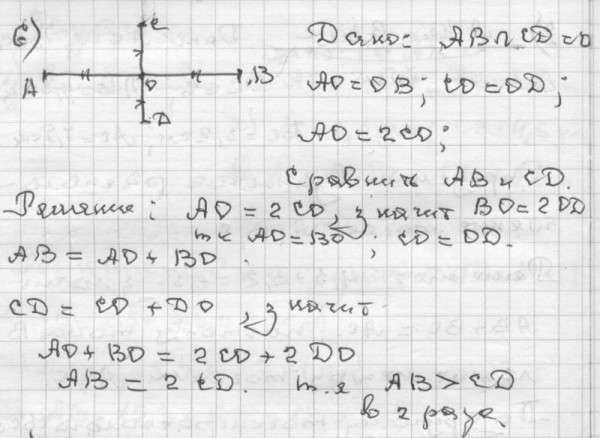 6)
C
A O B
D
Дано: AB ∩ CD = O
AO = OB; CO = OD;
AO = 2CO;
Сравнить AB и CD.
Решение: AO = 2CO, значит BO = 2OD
т.к AO = BO; CO = OD.
AB = AO + BO
CD = CO + DO, значит
AO + BO = 2CO + 2DO
AB = 2CD. т.е AB > CD
в 2 раза